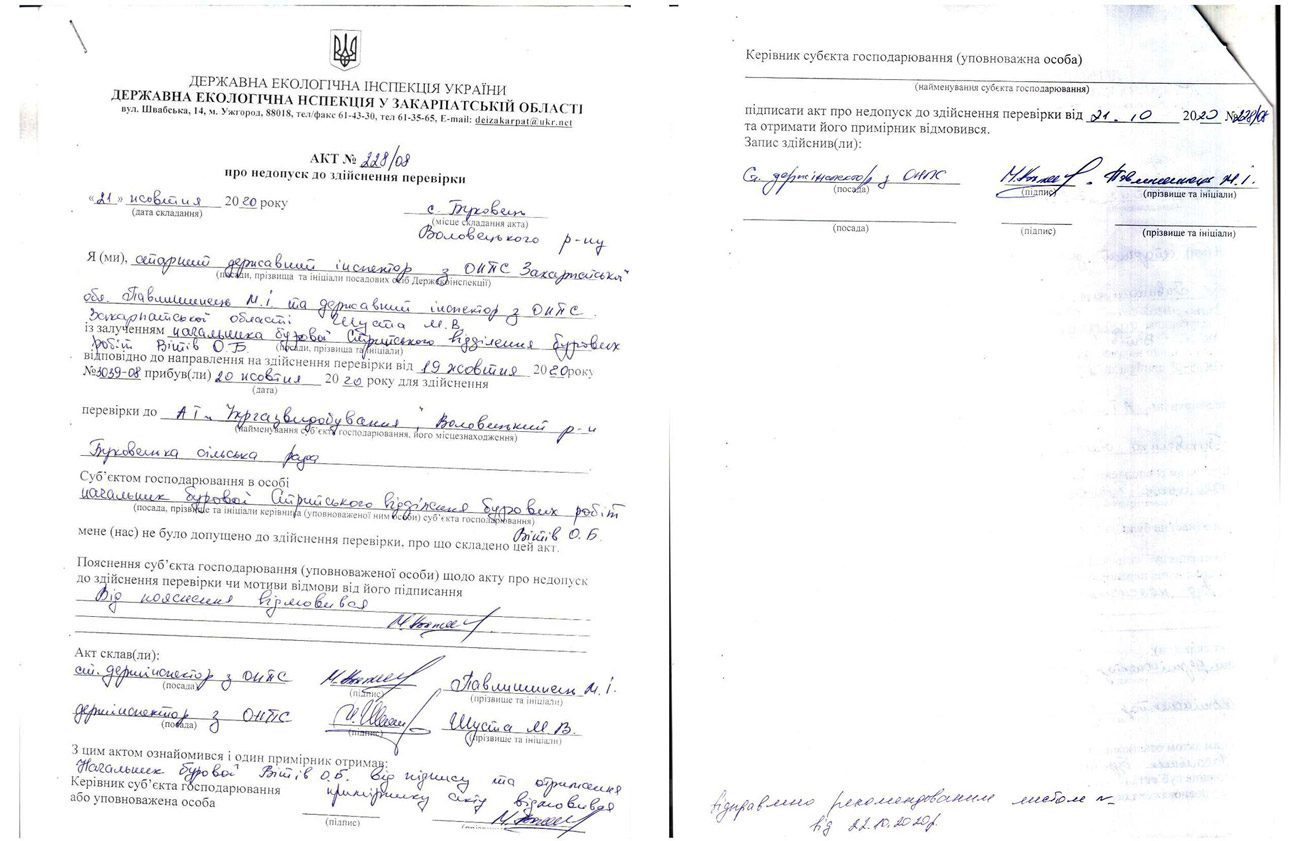 ДЕРЖАВНА ЕКОЛОГІЧНА ІНСПЕКЦІЯ УКРАЇНИ
ДЕРЖАВНА ЕКОЛОГІЧНА НСПЕКЦІЯ У ЗАКАРПАТСЬКІЙ ОБЛАСТІ
вул. Швабська, 14, м. Ужгород, 88018, тел/факс 61-43-30, тел 61-35-65, E-mail: deizakarpat@ukr.net
АКТ № 228/08
про недопуск до здійснення перевірки
«21» жовтня 2020 року
(дата складання)
с. Буковець
(місце складання акта)
Воловецького р-ну
Я (ми), старший державний інспектор з ОНПС Закарпатської
(посади, прізвища та ініціали посадових осіб Держекоінспекції)
обл. Павлишинець М.І. та державний інспектор з ОНПС
Закарпатської області Шуста М.В.
із залученням начальника бурової Стрийського відділення бурових
робіт Вітів О.Б. (посади, прізвища та ініціали)
відповідно до направлення на здійснення перевірки від 19 жовтня 2020 року
№3039-08 прибув(ли) 20 жовтня 2020 року для здійснення
(дата)
перевірки до АТ „Укргазвидобування", Воловецький р-н
(найменування суб'єкта господарювання, його місцезнаходження)
Буковецька сільська рада
Суб'єктом господарювання в особі
начальник бурової Стрийського відділення бурових робіт
(посада, прізвище та ініціали керівника (уповноваженої ним особи) суб'єкта господарювання)
Вітів О.Б.
мене (нас) не було допущено до здійснення перевірки, про що складено цей акт.
Пояснення суб'єкта господарювання (уповноваженої особи) щодо акту про недопуск
до здійснення перевірки чи мотиви відмови від його підписання
Від пояснення відмовився
Акт склав(ли):
ст. держінспектор з ОНПС Павлишинець М.І.
(посада) (підпис) (прізвище та ініціали)
держінспектор з ОНПС Шуста М.В.
(посада) (підпис) (прізвище та ініціали)
З цим актом ознайомився і один примірник отримав:
Начальник бурової Вітів О.Б. від підпису та отримання
Керівник суб'єкта господарювання примірнику акту відмовився
або уповноважена особа
(підпис) (прізвище та ініціали)
Керівник субєкта господарювання (уповноважна особа)
(найменування субєкта господарювання)
підписати акт про недопуск до здійснення перевірки від 21.10 2020 №228/08
та отримати його примірник відмовився.
Запис здійснив(ли):
Ст. держінспектор з ОНПС Павлишинець М.І.
(посада) (підпис) (прізвище та ініціали)
(посада) (підпис) (прізвище та ініціали)
Відправлено рекомендованим листом
від 22.10.2020р.